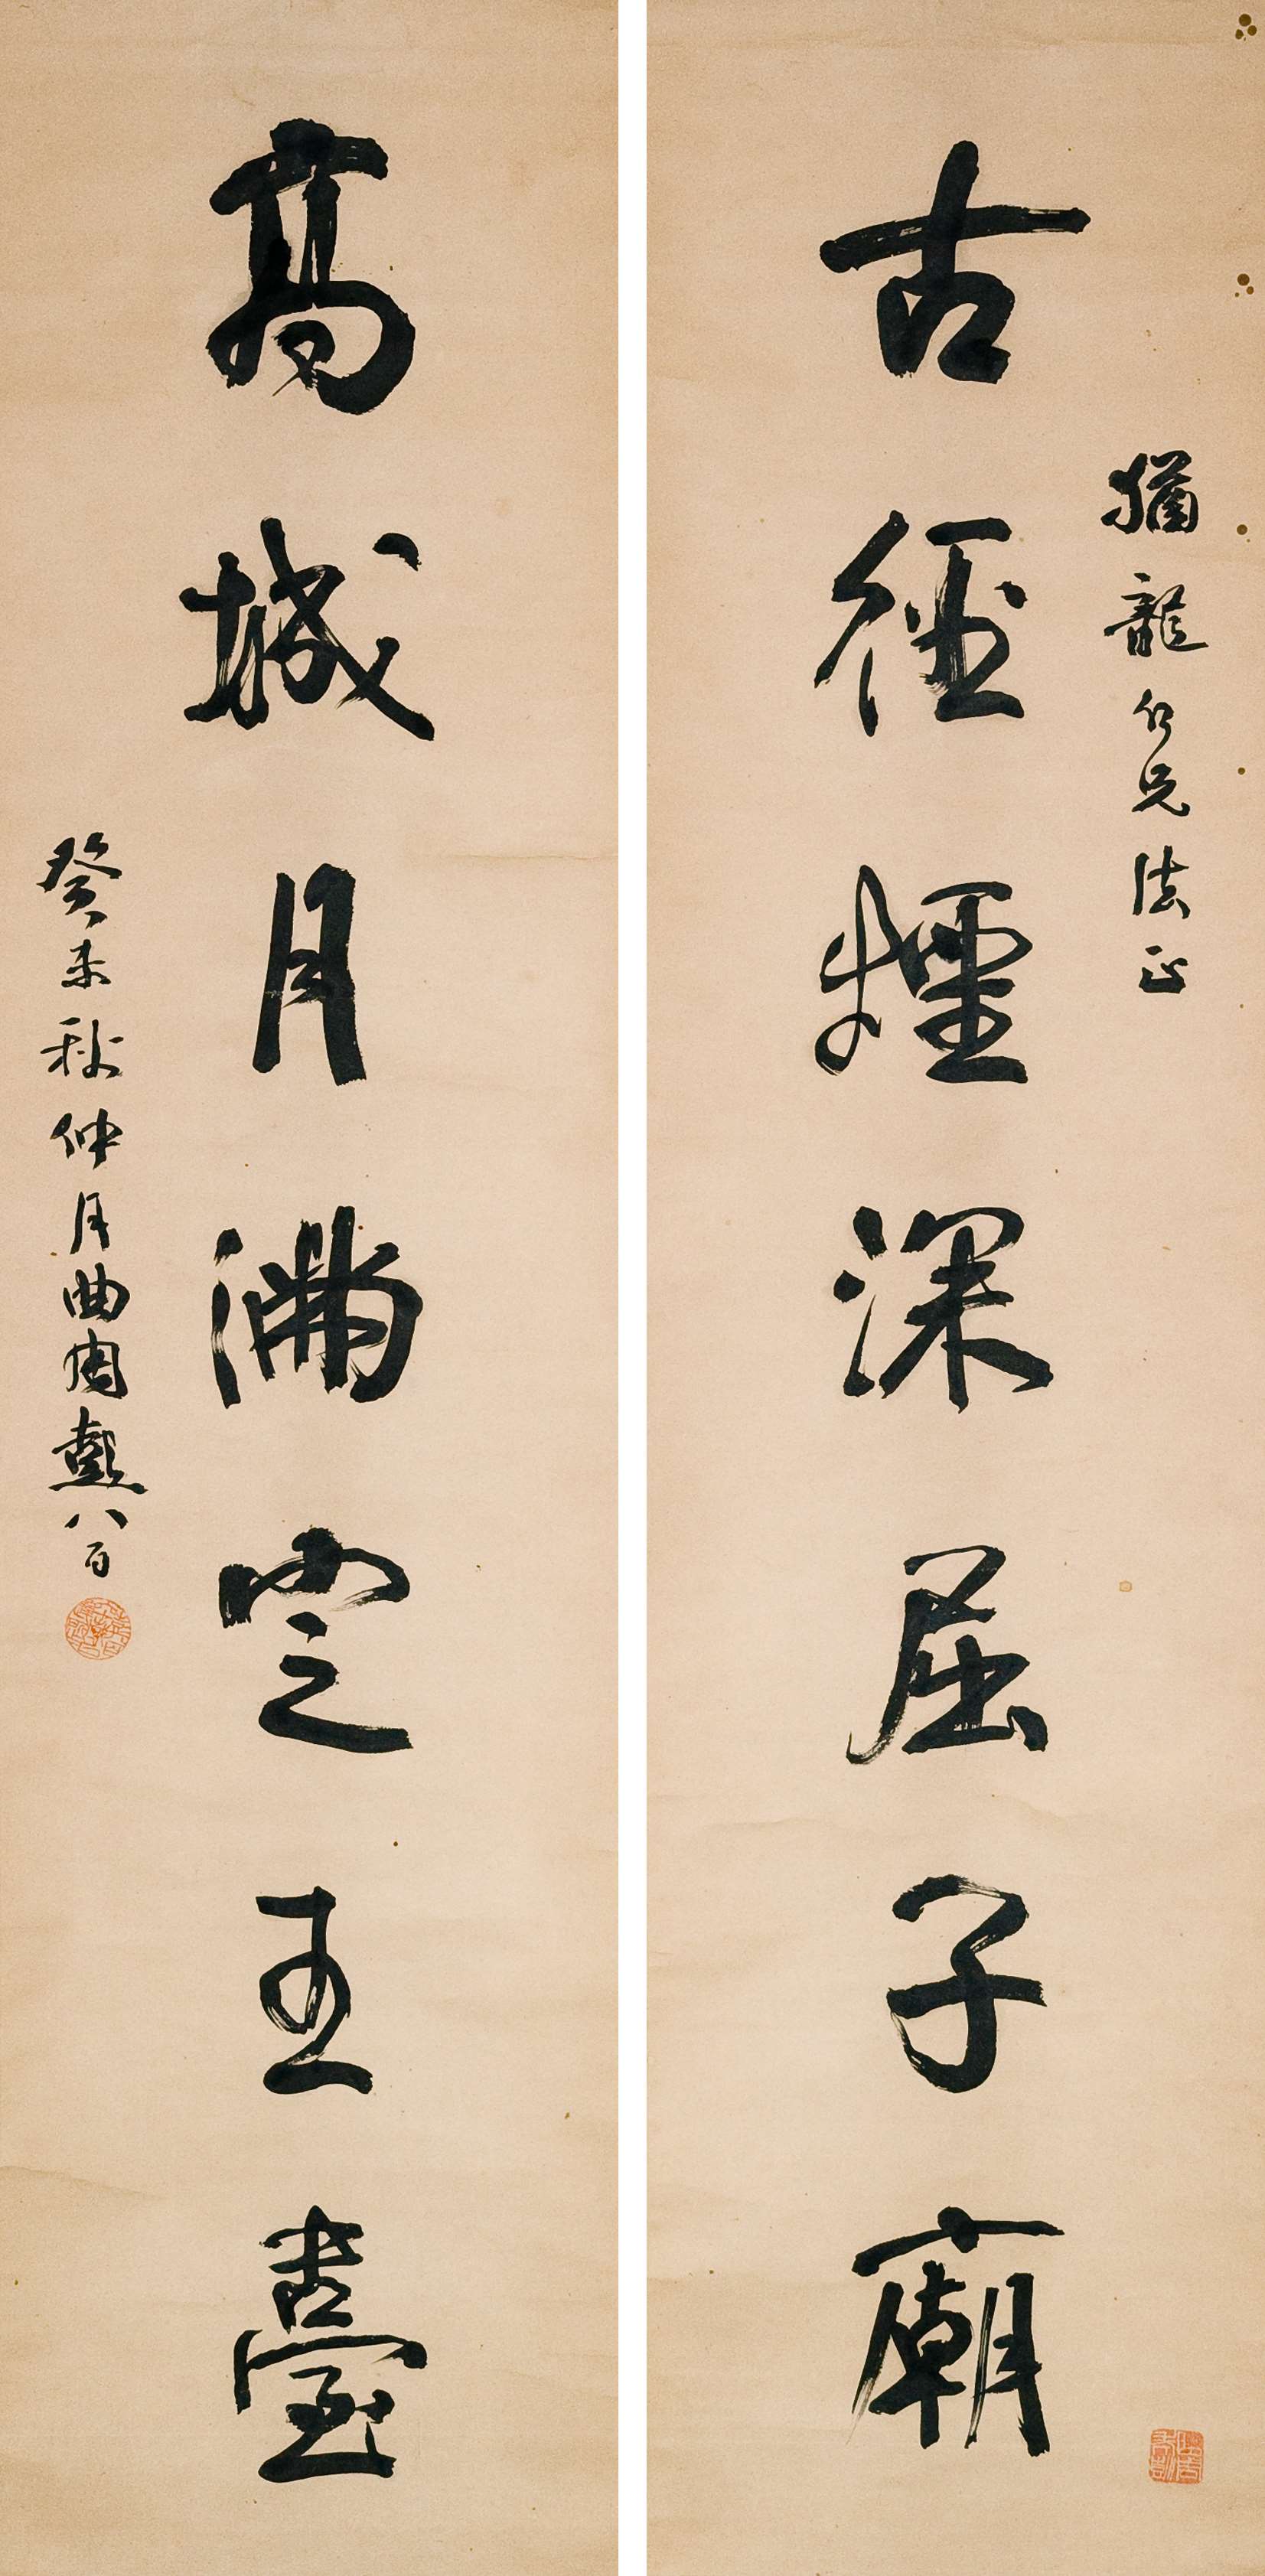 猶龍仁兄法正
古徑煙深屈子廟
高城月滿定王臺
癸未秋仲月曲八百